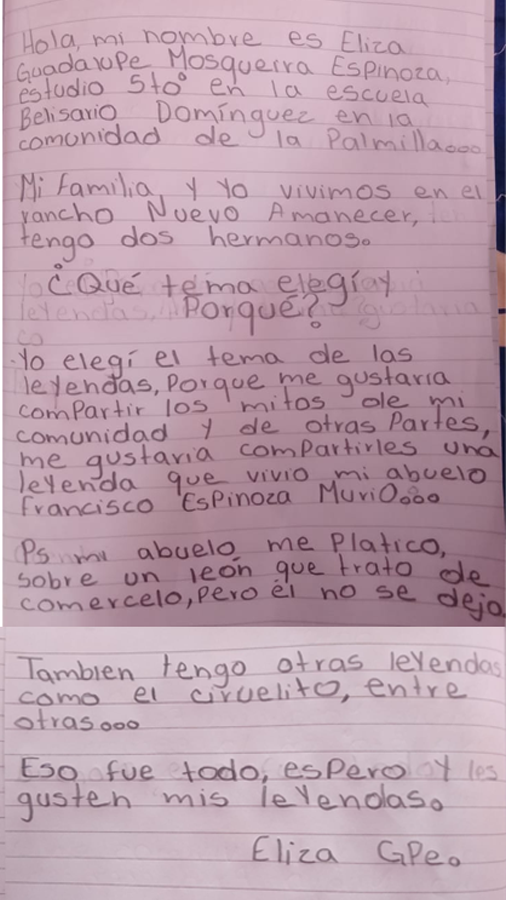 Hola, mi nombre es Eliza
Guadarupe Mosqueirra Espinoza,
estudio 5to° en la escuela
Belisario Domínguez en la
comunidad de la Palmilla...
Mi familia y yo vivimos en el
rancho Nuevo Amanecer,
tengo dos hermanos.
¿Qué tema elegí y
Porqué?
Yo elegí el tema de las
leyendas, Porque me gustaria
compartir los mitos de mi
comunidad y de otras Partes,
me gustaria compartirles una
leyenda que vivio mi abuelo
francisco Espinoza Murio...
Ps mi abuelo me Platico,
sobre un león que trato de
comercelo, pero él no se dejo
Tambien tengo otras leyendas
como el ciruelito, entre
otras...
Eso fue todo, espero y les
gusten mis leyendas.
Eliza GPe.